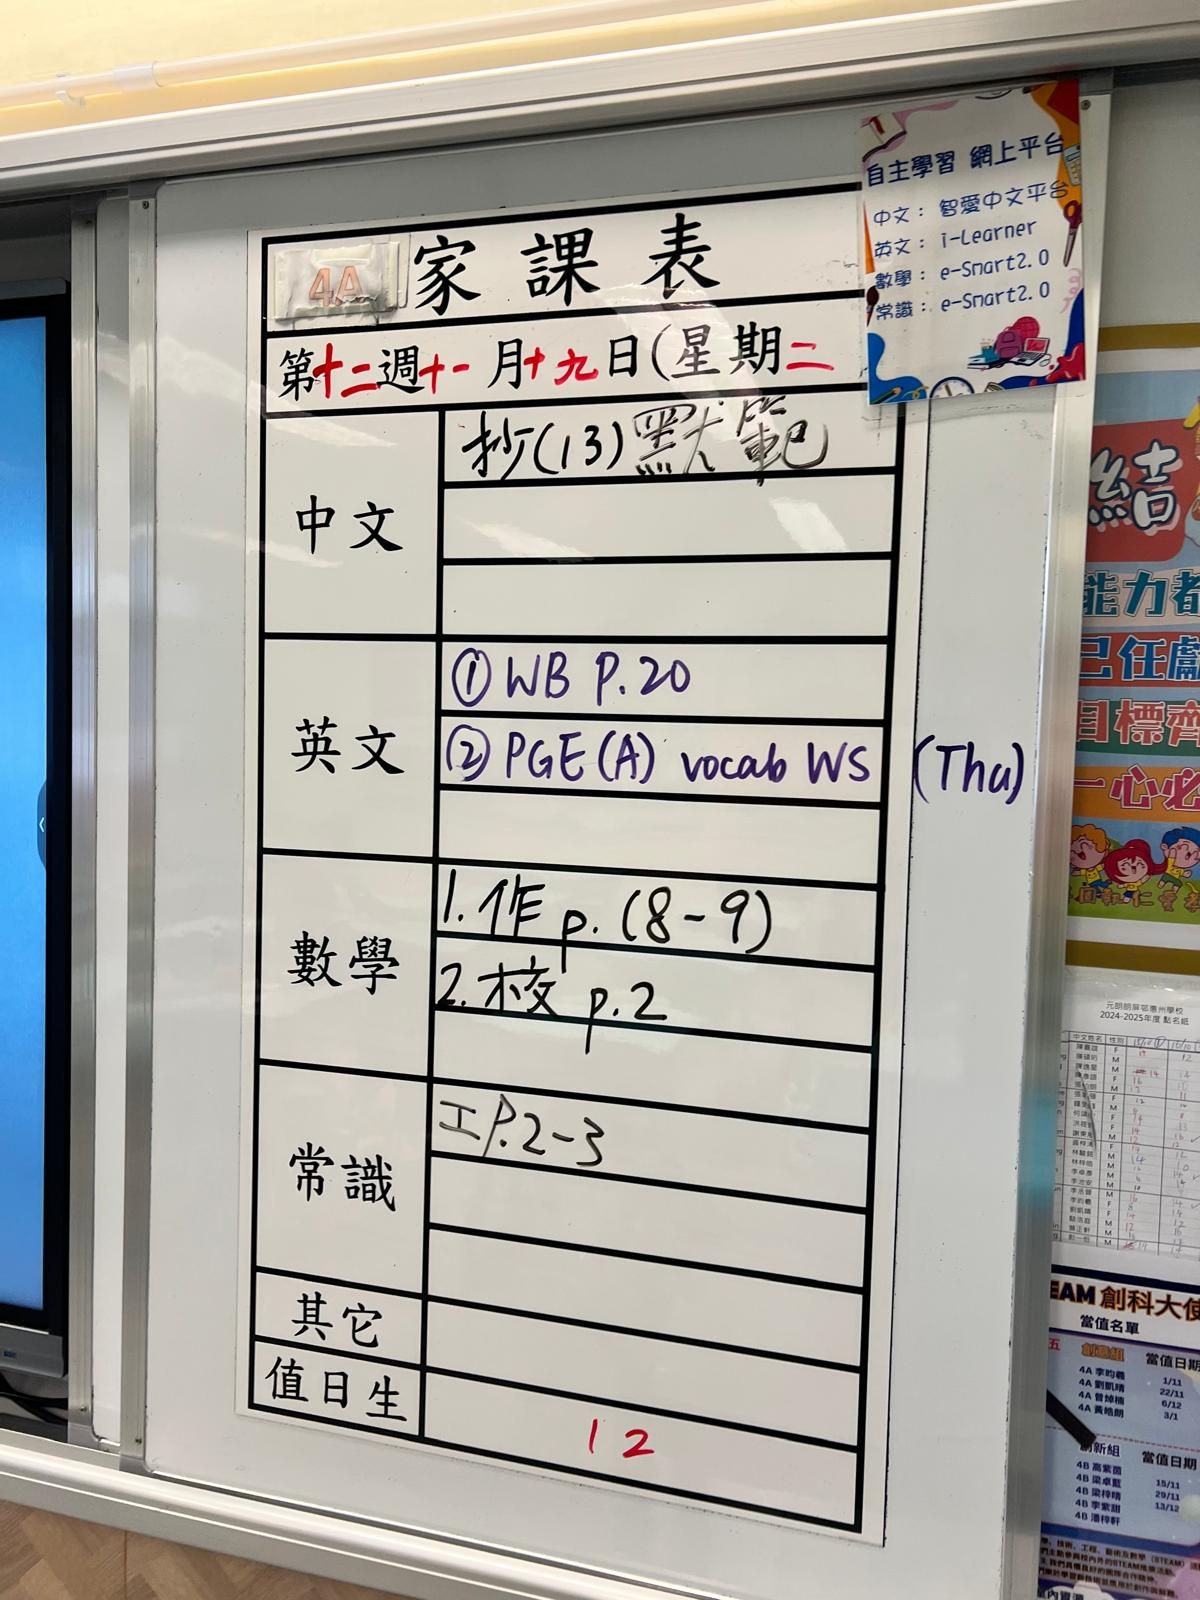 4A 家課表
第十二週十一月十九日(星期二
中文
抄(13)默範
英文
① WB P.20
② PGE(A) vocab WS (Thu)
數學
1. 作 p. (8-9)
2. 校 p.2
常識
工P.2-3
其它
值日生
12
自主學習 網上平台
中文： 智愛中文平台
英文： i-Learner
數學： e-Smart2.0
常識： e-Smart2.0
結
能力都
己任獻
目標齊
一心必
元朗朗屏邨惠州學校
2024-2025年度 點名紙
中文姓名 性別
EAM 創科大使
當值名單
五 創意組 當值日期
4A 李昀羲 1/11
4A 劉凱晴 22/11
4A 曾焯楠 6/12
4A 黃皓朗 3/1
創新組 當值日期
4B 高紫茵
4B 梁卓藍 15/11
4B 梁梓晴 29/11
4B 李紫甜 13/12
4B 潘梓軒